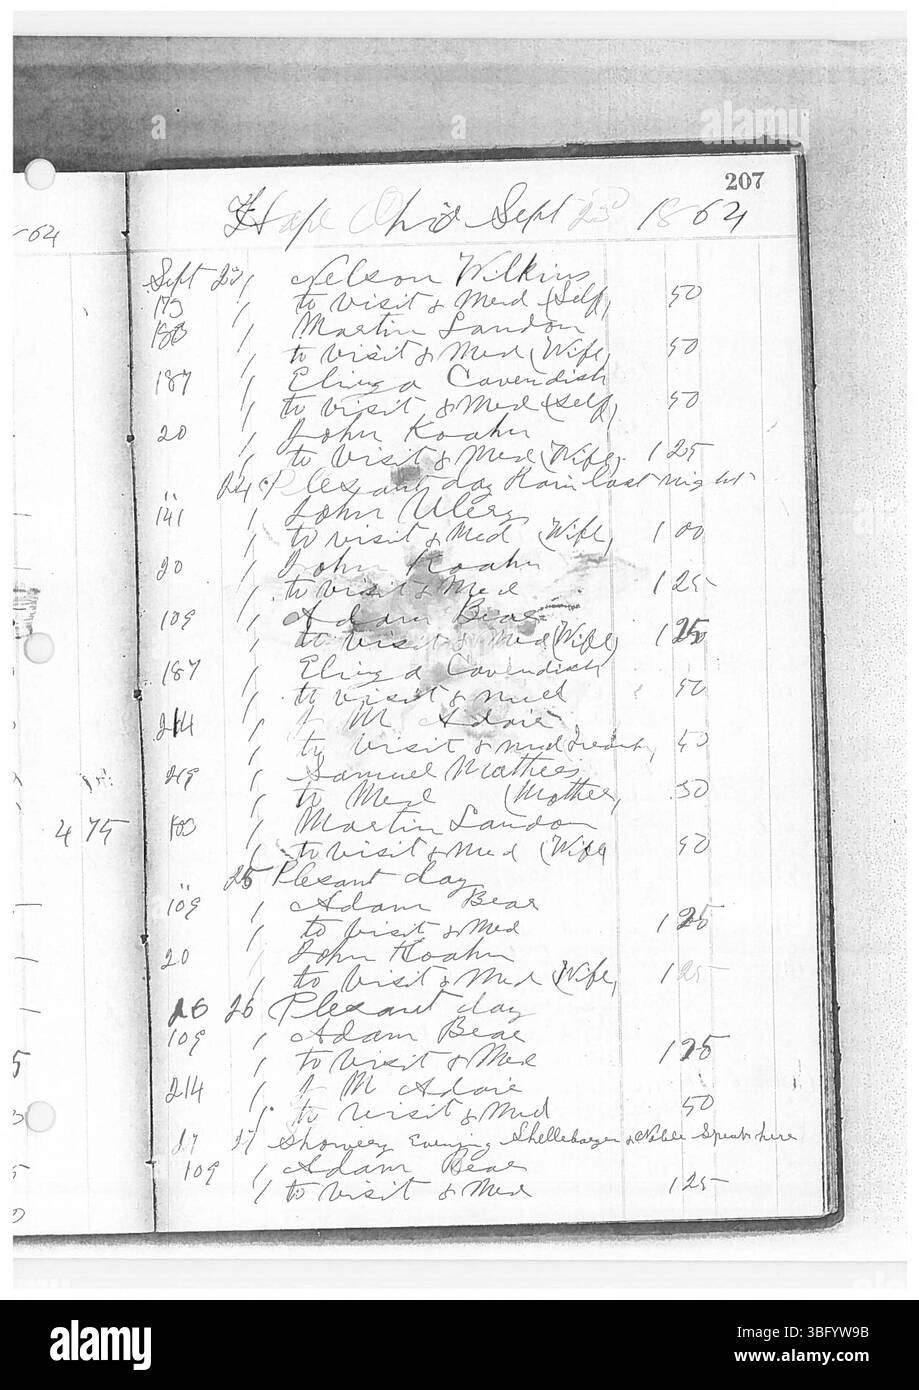 207
Hope Ohio Sept 23d 1864
-64
Sept 23 " Nelson Wilkins
173 " to visit & Med (Self, 50
183 " Martin Landon
" to visit & Med (Wife, 50
187 " Eliza Cavendish
" to visit & Med (Self, 50
20 " John Koahn
" to visit & Med (Wife, 1 25
" 24 Plesant day Rain last night
141 " John Ulery
" to visit & Med (Wife, 1 00
20 " John Koahn
" to visit & Med 1 25
109 " Adam Bear
" to visit & Med (Wife) 1 25
187 " Eliza Cavendish
" to visit & med 50
214 " J M Adair
" to visit & med 50
219 " Samuel Mathews
" to Med (Mother, 50
4 75
183 " Martin Landon
" to visit & Med (Wife 50
" 25 Plesant day
109 " Adam Bear
" to visit & Med 1 25
20 " John Koahn
" to visit & Med (Wife, 1 25
26 26 Plesant day
109 " Adam Bear
" to visit & Med 1 25
214 " J M Adair
" to visit & Med 50
27 27 Showery Evening Shellebarger & Noble Speak here
109 " Adam Bear
" to visit & Med 1 25
a
a
alamy
alamy
Image ID: 3BFYW9B
www.alamy.com